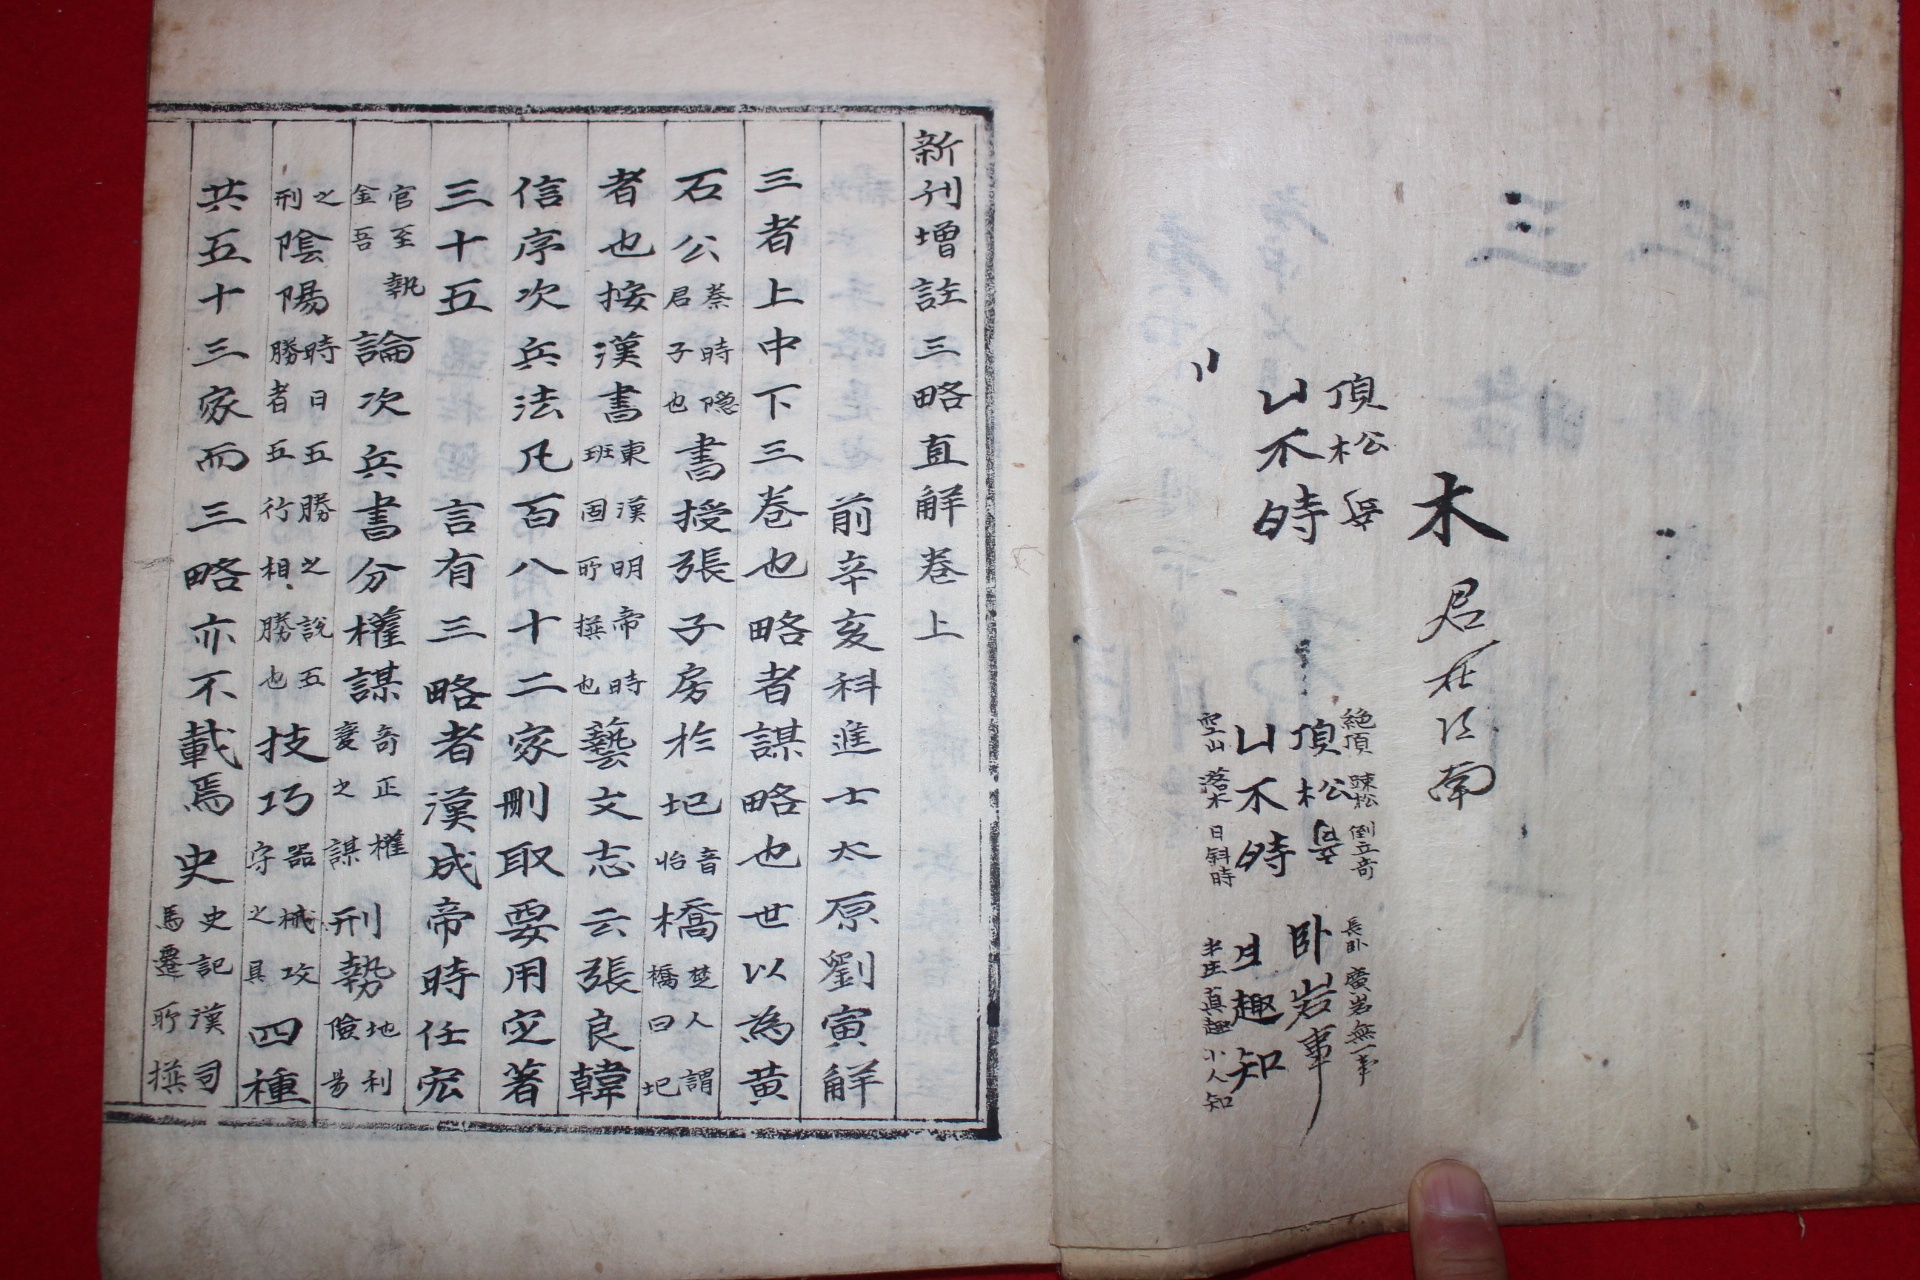 木
君在江南
頂松
不時
絶頂 踈松 倒立奇 長卧 廣岩無一事
頂松 卧岩事
不時 趣知
空山 落木 日斜時 半庄真趣小人知
新刊增註三略直解卷上
前辛亥科進士太原劉寅解
三者上中下三卷也略者謀略也世以為黃
石公蔡時隱君子也書授張子房於圯音怡橋楚人謂橋曰圯
者也按漢書東漢明帝時班固所撰也藝文志云張良韓
信序次兵法凡百八十二家刪取要用定著
三十五 言有三略者漢成帝時任宏
官至執金吾論次兵書分權謀奇正權變之謀刑勢地利險易
之刑陰陽時日五勝之說五勝者五行相勝也技巧器械攻守之具四種
共五十三家而三略亦不載焉史史記漢司馬遷所撰